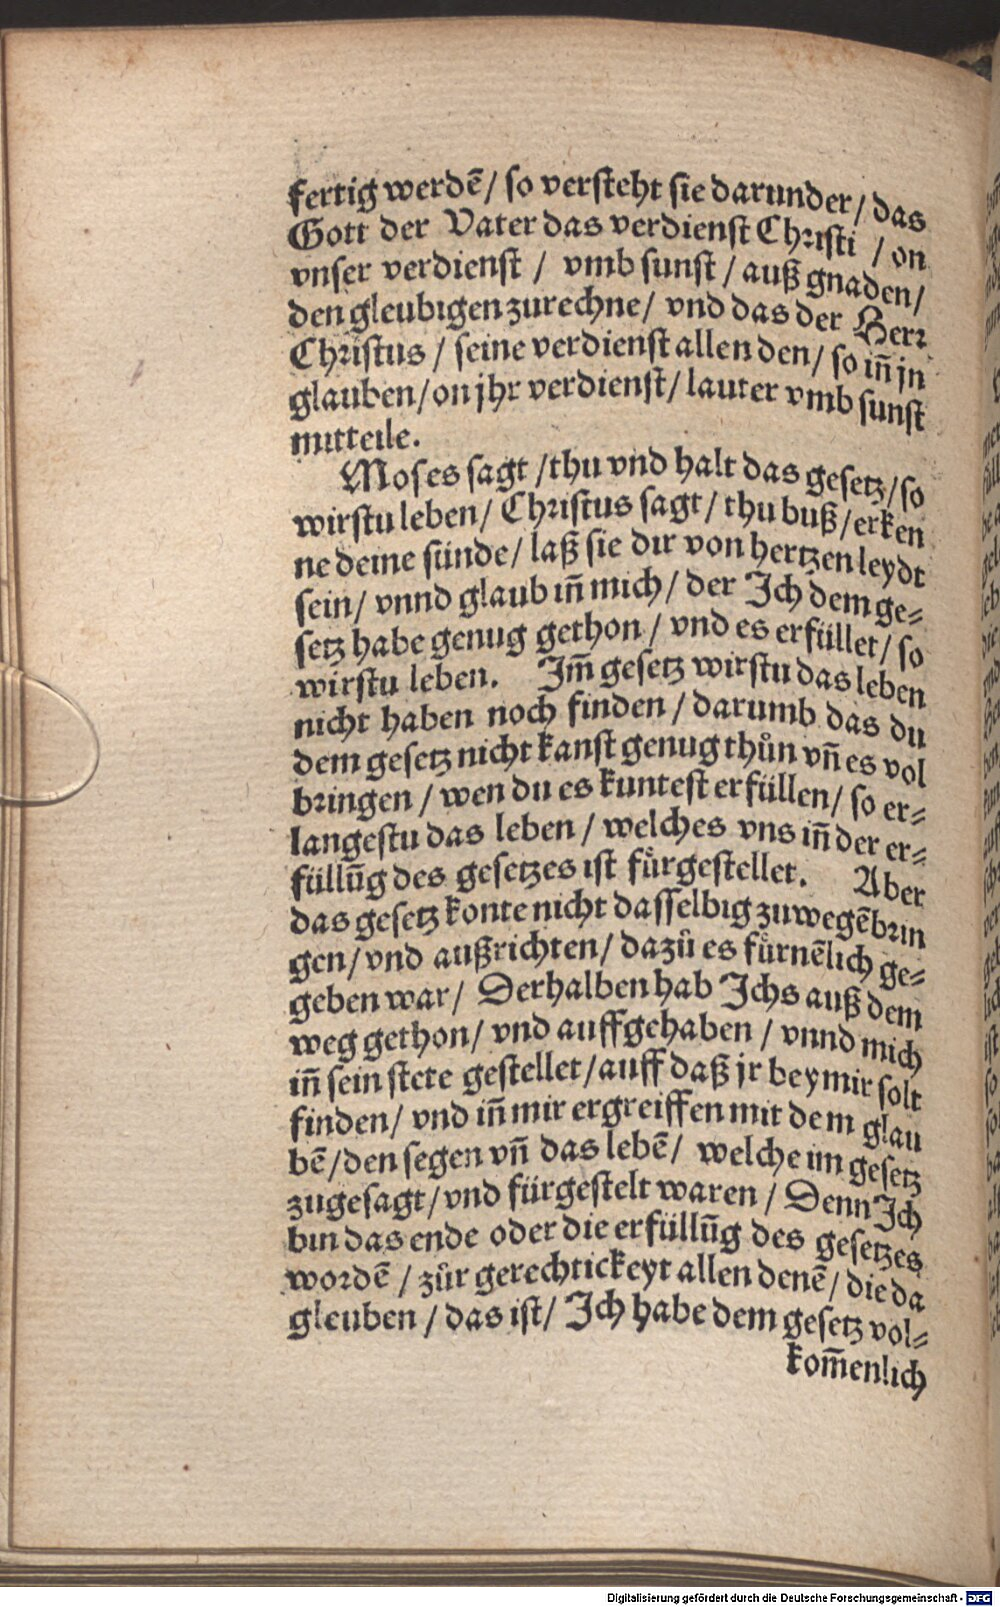 fertig werdē/ so versteht sie darunder/ das
Gott der Vater das verdienst Christi / on
vnser verdienst / vmb sunst / auß gnaden/
den gleubigen zurechne/ vnd das der Herr
Christus / seine verdienst allen den/ so iñ jn
glauben/ on jhr verdienst/ lauter vmb sunst
mitteile.
Moses sagt /thu vnd halt das gesetz/ so
wirstu leben/ Christus sagt/ thu buß/ erken
ne deine sünde/ laß sie dir von hertzen leydt
sein/ vnnd glaub iñ mich/ der Ich dem ge⸗
setz habe genug gethon / vnd es erfüllet/ so
wirstu leben. Im̃ gesetz wirstu das leben
nicht haben noch finden / darumb das du
dem gesetz nicht kanst genug thůn vñ es vol
bringen / wen du es kuntest erfüllen/ so er⸗
langestu das leben / welches vns iñ der er⸗
füllūg des gesetzes ist fürgestellet. Aber
das gesetz konte nicht dasselbig zuwegē brin
gen/ vnd außrichten/ dazů es fürnēlich ge⸗
geben war/ Derhalben hab Ichs auß dem
weg gethon/ vnd auffgehaben / vnnd mich
iñ sein stete gestellet/ auff daß jr bey mir solt
finden/ vnd iñ mir ergreiffen mit dem glau
bē/ den segen vñ das lebē/ welche im gesetz
zugesagt/ vnd fürgestelt waren / Denn Ich
bin das ende oder die erfüllūg des gesetzes
wordē / zůr gerechtickeyt allen denē/ die da
gleuben / das ist/ Ich habe dem gesetz vol⸗
kom̃enlich
Digitalisierung gefördert durch die Deutsche Forschungsgemeinschaft - DFG